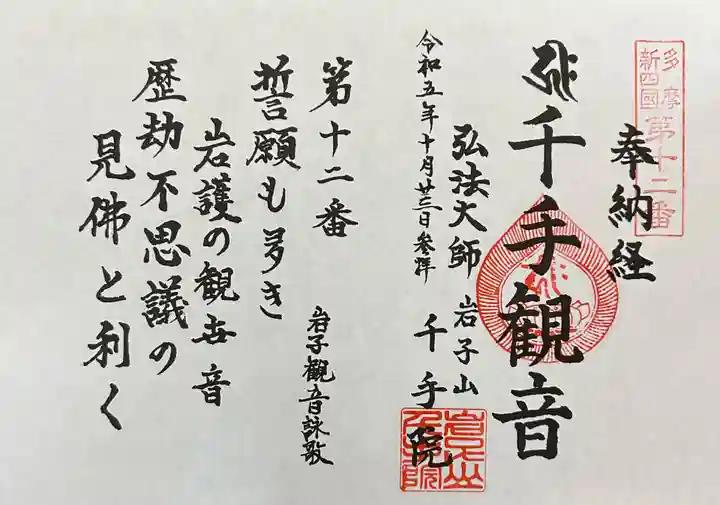 多摩
新四國
第十二番
奉納経
千手観音
弘法大師
岩子山
千手院
令和五年十月廿三日参拝
第十二番
岩子観音詠歌
誓願も多き
岩護の観世音
歴劫不思議の
見佛と利く